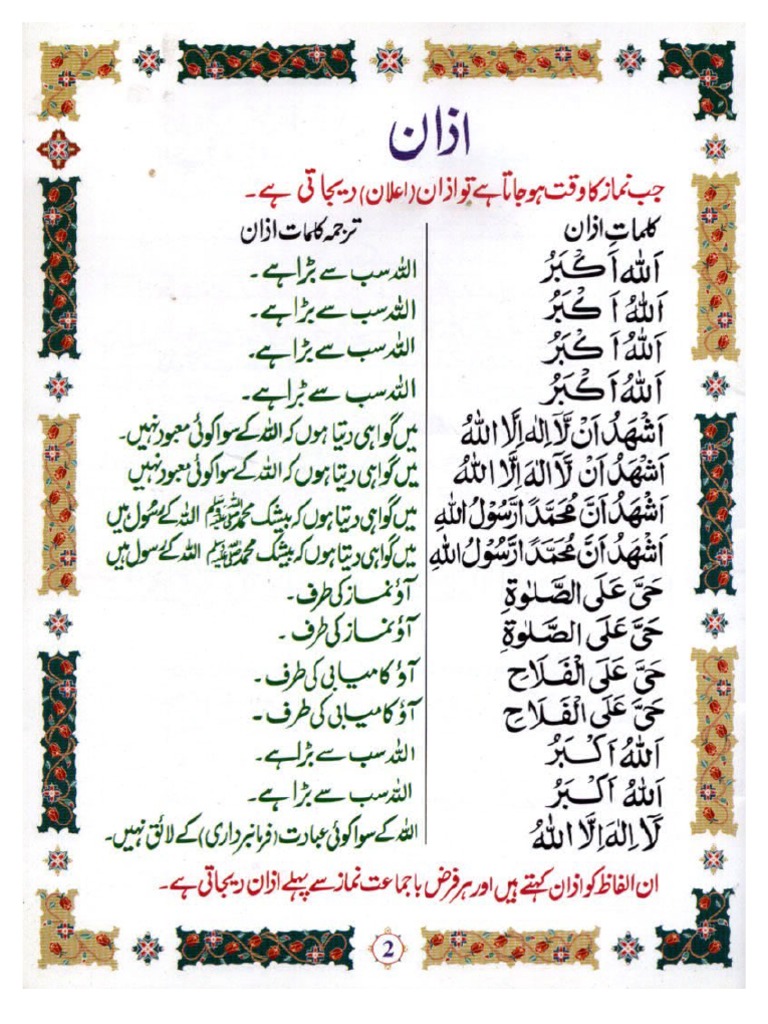 اذان
جب نماز کا وقت ہو جاتا ہے تو اذان (اعلان) دیجاتی ہے۔
کلماتِ اذان ترجمہ کلمات اذان
اَللّٰہ اَکْبَرُ اللہ سب سے بڑا ہے۔
اَللّٰہُ اَکْبَرُ اللہ سب سے بڑا ہے۔
اَللّٰہُ اَکْبَرُ اللہ سب سے بڑا ہے۔
اَللّٰہُ اَکْبَرُ اللہ سب سے بڑا ہے۔
اَشْھَدُ اَنْ لَّآ اِلٰہَ اِلَّا اللّٰہُ میں گواہی دیتا ہوں کہ اللہ کے سوا کوئی معبود نہیں۔
اَشْھَدُ اَنْ لَّآ اِلٰہَ اِلَّا اللّٰہُ میں گواہی دیتا ہوں کہ اللہ کے سوا کوئی معبود نہیں
اَشْھَدُ اَنَّ مُحَمَّدًا رَّسُوْلُ اللّٰہِ میں گواہی دیتا ہوں کہ بیشک محمد ﷺ اللہ کے رسول ہیں
اَشْھَدُ اَنَّ مُحَمَّدًا رَّسُوْلُ اللّٰہِ میں گواہی دیتا ہوں کہ بیشک محمد ﷺ اللہ کے رسول ہیں
حَیَّ عَلَی الصَّلٰوۃِ آؤ نماز کی طرف۔
حَیَّ عَلَی الصَّلٰوۃِ آؤ نماز کی طرف۔
حَیَّ عَلَی الْفَلَاحِ آؤ کامیابی کی طرف۔
حَیَّ عَلَی الْفَلَاحِ آؤ کامیابی کی طرف۔
اَللّٰہُ اَکْبَرُ اللہ سب سے بڑا ہے۔
اَللّٰہُ اَکْبَرُ اللہ سب سے بڑا ہے۔
لَآ اِلٰہَ اِلَّا اللّٰہُ اللہ کے سوا کوئی عبادت (فرمانبرداری) کے لائق نہیں۔
ان الفاظ کو اذان کہتے ہیں اور ہر فرض با جماعت نماز سے پہلے اذان دیجاتی ہے۔
2